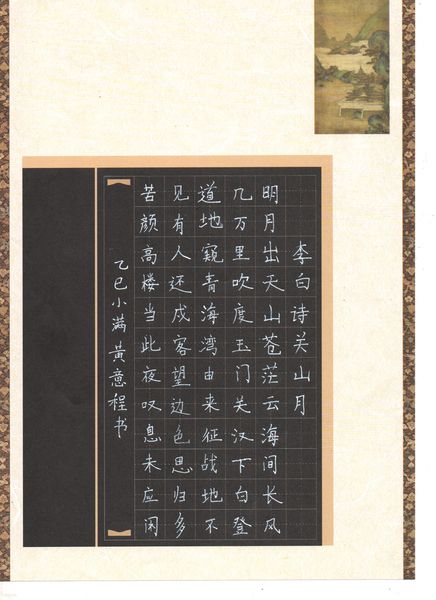 李白诗关山月
明月出天山苍茫云海间长风
几万里吹度玉门关汉下白登
道地窥青海湾由来征战地不
见有人还戍客望边色思归多
苦颜高楼当此夜叹息未应闲
乙巳小满黃意程书